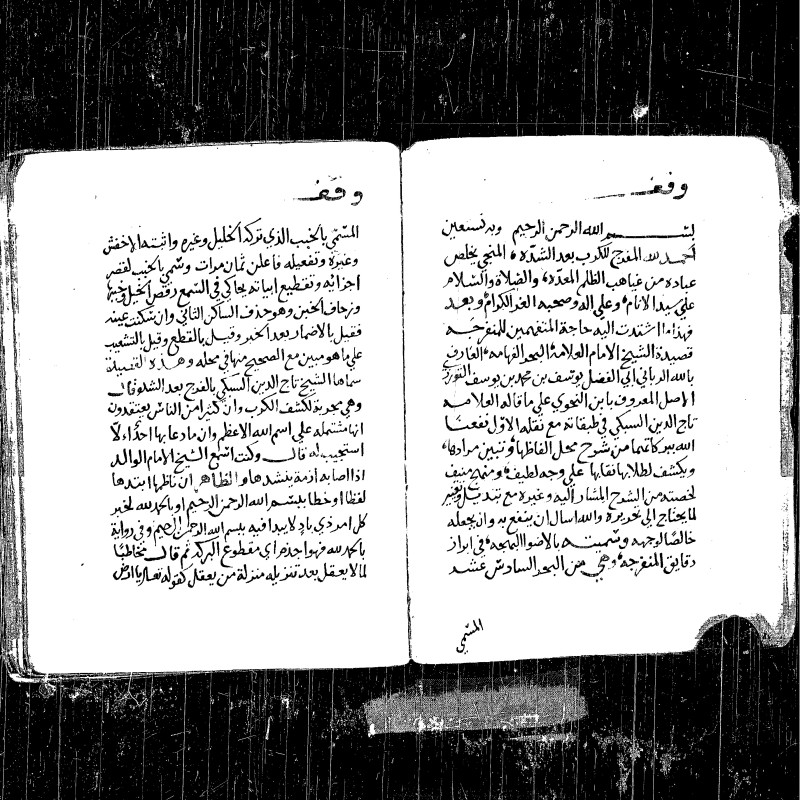 وقف
بسم الله الرحمن الرحيم وبه نستعين
الحمد لله المفرج للكرب بعد الشده، المنجي بخلص
عباده من غياهب الظلم المعده، والصلاة والسلام
علي سيد الانام، وعلي اله وصحبه الغر الكرام، وبعد
فهذا ما اشتدت اليه حاجة المتفهمين للمنفرجه
قصيدة الشيخ الامام العلامه، البحر الفهامه، العارف
بالله الرباني ابي الفضل يوسف بن محمد بن يوسف التوزري
الاصل المعروف بابن النحوي علي ما قاله العلامه
تاج الدين السبكي في طبقاته مع نقله الاول نفعنا
الله ببركاتهما من شرح يحل الفاظها، ويبين مرادها،
ويكشف لطلابها نقابها علي وجه لطيف، ومنهج منيف
لخصته من الشرح المشار اليه وغيره مع تبديل وتغيير
لما يحتاج الي تحريره والله اسال ان ينفع به وان يجعله
خالصا لوجهه وسميته بالاضوا البهجه، في ابراز
دقايق المنفرجه، وهي من البحر السادس عشر
المسمي
وقف
المسمي بالخبب الذي تركه الخليل وغيره واثبته الاخفش
وغيره وتفعيله فاعلن ثمان مرات وسمي بالخبب لقصر
اجزائه وتقطيع ابياته يحاكي في السمع ركض الخيل وخببها
وزحاف الخبن وهو حذف الساكن الثاني وان سكنت عينه
فقيل بالاضمار بعد الخبن وقيل بالقطع وقيل بالتشعيث
علي ما هو مبين مع الصحيح منها في محله وهذه القصيدة
سماها الشيخ تاج الدين السبكي بالفرج بعد الشده قال
وهي مجربة لكشف الكرب وان كثيرا من الناس يعتقدون
انها مشتمله علي اسم الله الاعظم وان ما دعا بها احد الا
استجيب له قال وكنت اسمع الشيخ الامام الوالد
اذا اصابه ازمة ينشدها والظاهر ان ناظمها ابتدها
لفظا او خطا ببسم الله الرحمن الرحيم او بالحمد لله لخبر
كل امر ذي بال لا يبدا فيه ببسم الله الرحمن الرحيم وفي رواية
بالحمد لله فهو اجذم اي مقطوع البركه ثم قال مخاطبا
لما لا يعقل بعد تنزيله منزلة من يعقل كقوله تعالي يا ارض